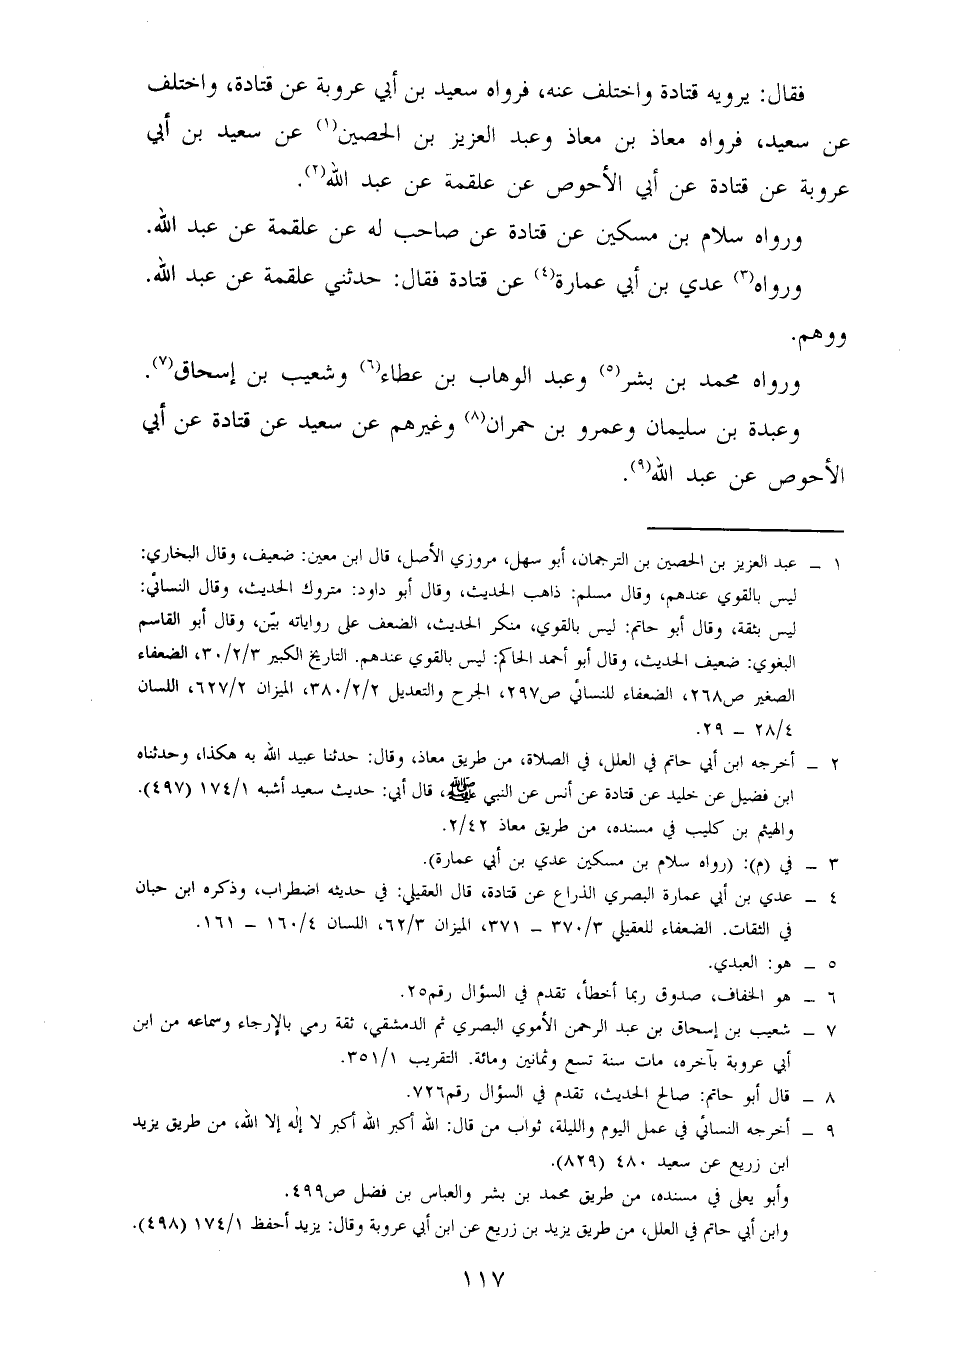 فقال: يرويه قتادة واختلف عنه، فرواه سعيد بن أبي عروبة عن قتادة، واختلف
عن سعيد، فرواه معاذ بن معاذ وعبد العزيز بن الحصين(١) عن سعيد بن أبي
عروبة عن قتادة عن أبي الأحوص عن علقمة عن عبد الله(٢).
ورواه سلام بن مسكين عن قتادة عن صاحب له عن علقمة عن عبد الله.
ورواه(٣) عدي بن أبي عمارة(٤) عن قتادة فقال: حدثني علقمة عن عبد الله.
ووهم.
ورواه محمد بن بشر(٥) وعبد الوهاب بن عطاء(٦) وشعيب بن إسحاق(٧).
وعبدة بن سليمان وعمرو بن حمران(٨) وغيرهم عن سعيد عن قتادة عن أبي
الأحوص عن عبد الله(٩).
١ ــ عبد العزيز بن الحصين بن الترجمان، أبو سهل، مروزي الأصل، قال ابن معين: ضعيف، وقال البخاري:
ليس بالقوي عندهم، وقال مسلم: ذاهب الحديث، وقال أبو داود: متروك الحديث، وقال النسائي:
ليس بثقة، وقال أبو حاتم: ليس بالقوي، منكر الحديث، الضعف على رواياته بيّن، وقال أبو القاسم
البغوي: ضعيف الحديث، وقال أبو أحمد الحاكم: ليس بالقوي عندهم. التاريخ الكبير ٣٠/٢/٣، الضعفاء
الصغير ص٢٦٨، الضعفاء للنسائي ص٢٩٧، الجرح والتعديل ٣٨٠/٢/٢، الميزان ٦٢٧/٢، اللسان
٢٨/٤ ــ ٢٩.
٢ ــ أخرجه ابن أبي حاتم في العلل، في الصلاة، من طريق معاذ، وقال: حدثنا عبيد الله به هكذا، وحدثناه
ابن فضيل عن خليد عن قتادة عن أنس عن النبي ﷺ، قال أبي: حديث سعيد أشبه ١٧٤/١ (٤٩٧).
والهيثم بن كليب في مسنده، من طريق معاذ ٢/٤٢.
٣ ــ في (م): (رواه سلام بن مسكين عدي بن أبي عمارة).
٤ ــ عدي بن أبي عمارة البصري الذراع عن قتادة، قال العقيلي: في حديثه اضطراب، وذكره ابن حبان
في الثقات. الضعفاء للعقيلي ٣٧٠/٣ ــ ٣٧١، الميزان ٦٢/٣، اللسان ١٦٠/٤ ــ ١٦١.
٥ ــ هو: العبدي.
٦ ــ هو الخفاف، صدوق ربما أخطأ، تقدم في السؤال رقم٢٥.
٧ ــ شعيب بن إسحاق بن عبد الرحمن الأموي البصري ثم الدمشقي، ثقة رمي بالإرجاء وسماعه من ابن
أبي عروبة بآخره، مات سنة تسع وثمانين ومائة. التقريب ٣٥١/١.
٨ ــ قال أبو حاتم: صالح الحديث، تقدم في السؤال رقم٧٢٦.
٩ ــ أخرجه النسائي في عمل اليوم والليلة، ثواب من قال: الله أكبر الله أكبر لا إله إلا الله، من طريق يزيد
ابن زريع عن سعيد ٤٨٠ (٨٢٩).
وأبو يعلى في مسنده، من طريق محمد بن بشر والعباس بن فضل ص٤٩٩.
وابن أبي حاتم في العلل، من طريق يزيد بن زريع عن ابن أبي عروبة وقال: يزيد أحفظ ١٧٤/١ (٤٩٨).
١١٧